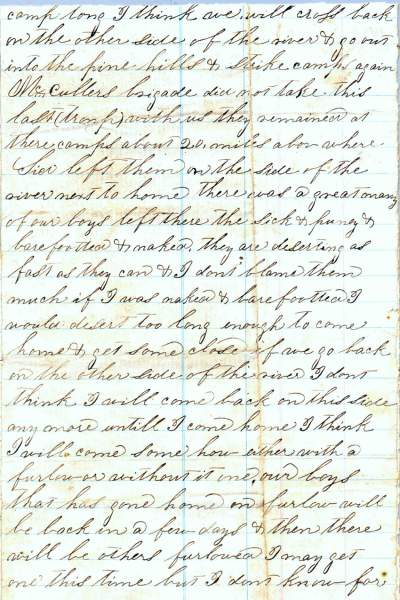 camp long I think we will cross back
on the other side of the river & go out
into the pine hills & strike camps again
McCullers brigade did not take this
last (tromp) with us they remained at
there camps about 20 miles abov where
I left them on the side of the
river next to home there was a great many
of our boys left there the sick & puney &
barefootted & naked. they are deserting as
fast as they can & I dont blame them
much if I was naked & barefootted I
would desert too long enough to come
home & get some close if we go back
on the other side of the river I dont
think I will come back on this side
any more untill I come home I think
I will come some how either with a
furlow or without it one our boys
that has gone home on furlow will
be back in a few days & then there
will be others furlowed I may get
one this time but I dont know for